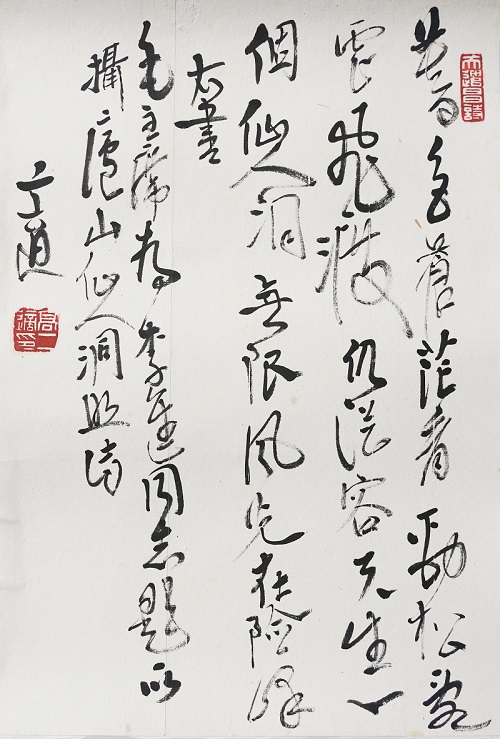 暮色蒼茫看勁松亂
雲飛渡仍從容天生一
個仙人洞無限風光在險峰
右書
毛主席為李進同志題所
攝廬山仙人洞照詩
二適
高二適印